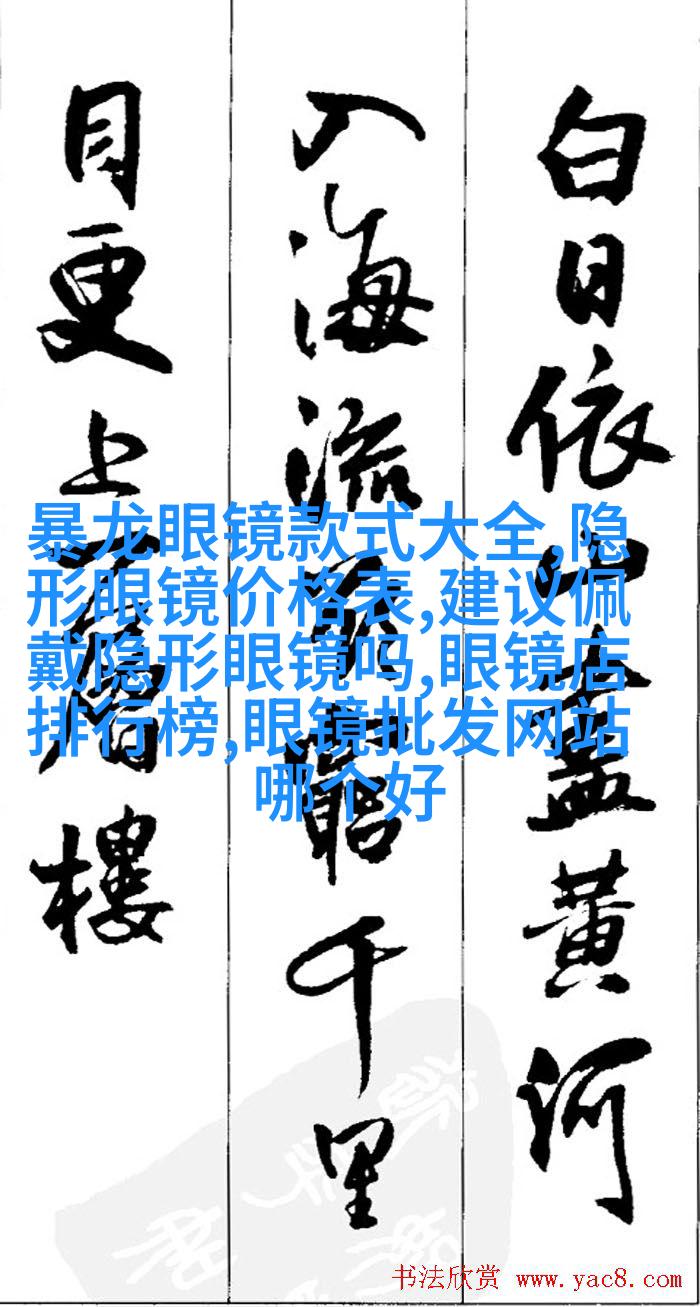 白日依山盡黃河
入海流欲窮千里
目更上一層樓
暴龙眼镜款式大全,隐
形眼镜价格表,建议佩
戴隐形眼镜吗,眼镜店
排行榜,眼镜批发网站
哪个好
书法欣赏 www.yac8.com